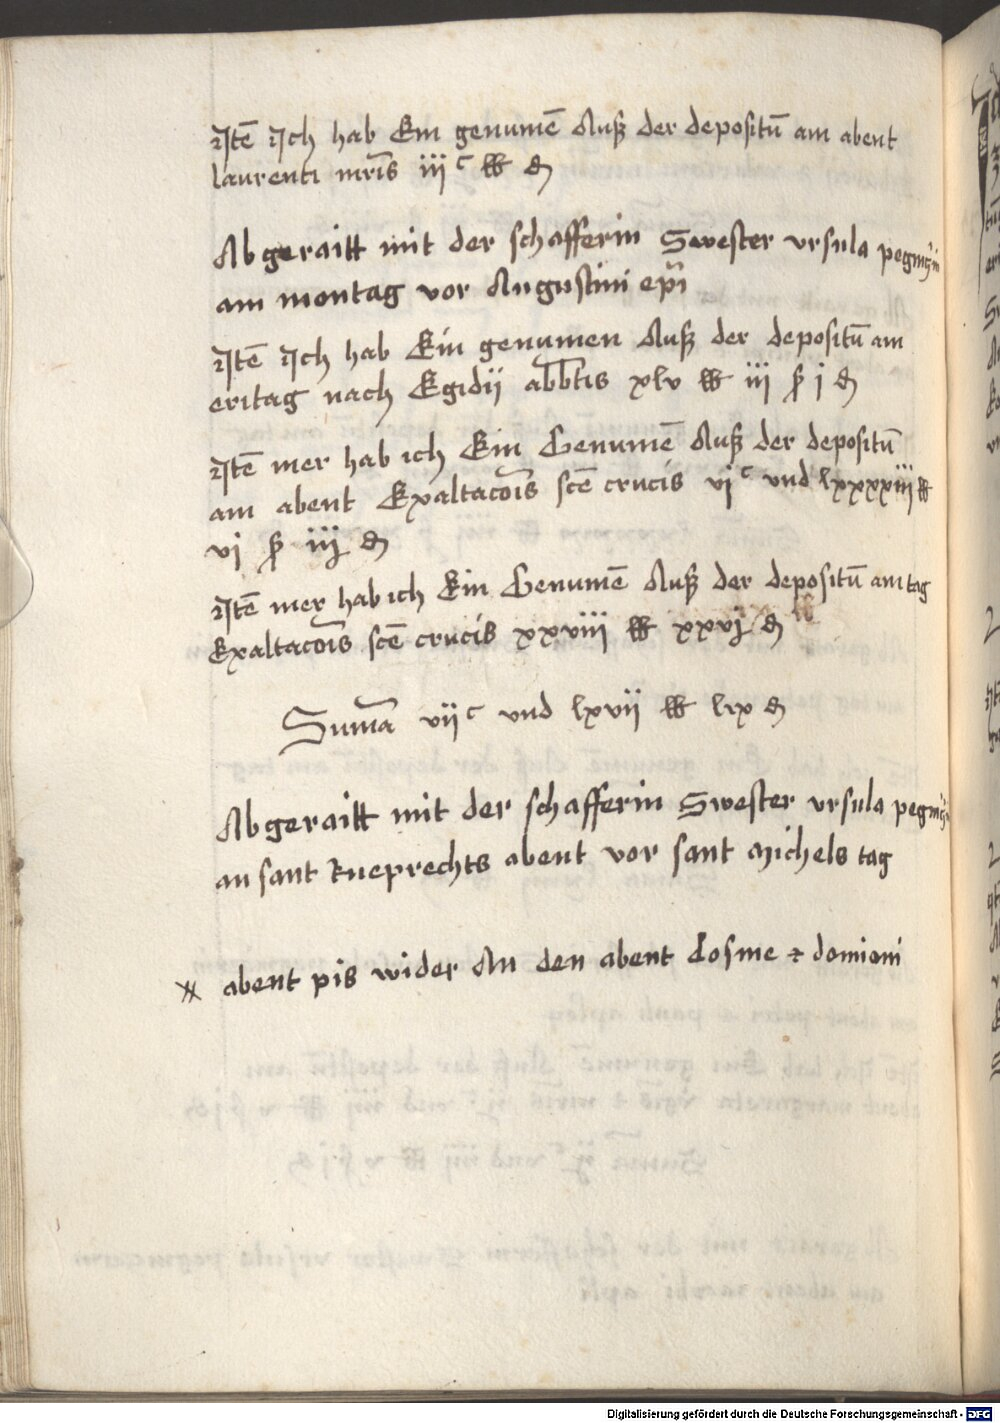 Jtē Jch hab Ein genumē Auß der depositū am abent
laurenti mr̄is iijᶜ ℔ ₰
Abgeraitt mit der schafferin Swester vrsula
am montag vor Augustini ep̄i
Jtē Jch hab Ein genumen Auß der depositū am
eritag nach Egidij abb̄tis xlv ℔ iij ß j ₰
Jtē mer hab ich Ein Genumē Auß der depositū
am abent Exaltacōis sc̄e crucis vjᶜ vnd lxxxxiij ℔
vj ß iij ₰
Jtē mer hab ich Ein Genumē Auß der depositū am tag
Exaltacōis sc̄e crucis xxviii ℔ xxvj ₰
Sum̄a vijᶜ vnd lxvij ℔ lix ₰
Abgeraitt mit der schafferin Swester vrsula
an sant Rueprechts abent vor sant Michels tag
abent pis wider An den abent Cosme ⁊ domiani
Digitalisierung gefördert durch die Deutsche Forschungsgemeinschaft - DFG